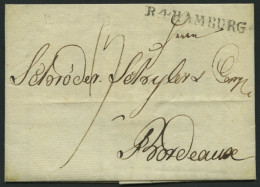 R.4.HAMBURG
Herrn
Schröder Schyler & Comp
Bordeaux